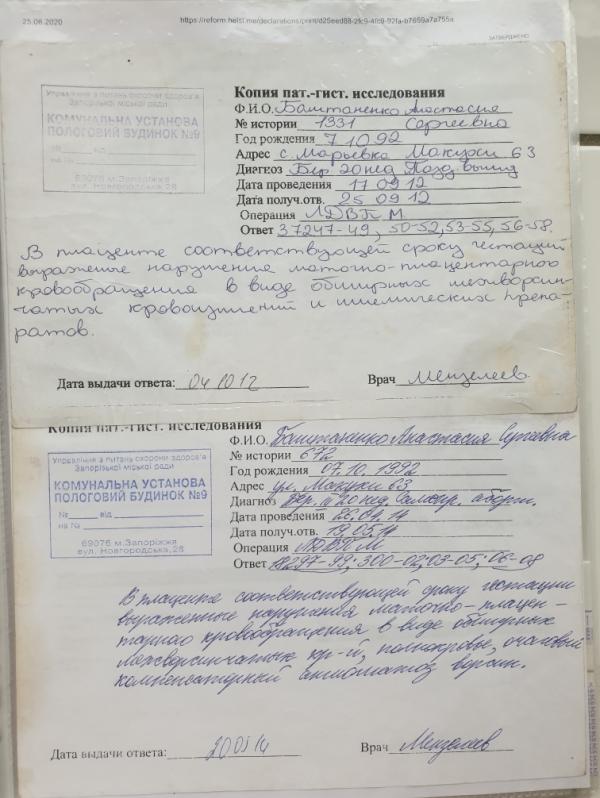 25.06.2020
ЗАТВЕРДЖЕНО
Управління з питань охорони здоров'я
Запорізької міської ради
КОМУНАЛЬНА УСТАНОВА
ПОЛОГОВИЙ БУДИНОК №9
№ від
на №
69076 м.Запоріжжя
вул. Новгородська,28
Копия пат.-гист. исследования
Ф.И.О. Баштаненко Анастасия
№ истории 1331 Сергеевна
Год рождения 7.10.92
Адрес с. Марьевка Макухи 63
Диагноз Бер. 20 нед Позд. выкид
Дата проведения 17 09 12
Дата получ.отв. 25 09 12
Операция ЛДВП М.
Ответ 37247-49, 50-52, 53-55, 56-58.
В плаценте соответствующей сроку гестации
выражение нарушение маточно-плацентарного
кровообращения в виде обширных межворсин-
чатых кровоизлияний и ишемических препа-
ратов.
Дата выдачи ответа: 04 10 12 Врач Мензелеев
Копия пат.-гист. исследования
Управління з питань охорони здоров'я
Запорізької міської ради
КОМУНАЛЬНА УСТАНОВА
ПОЛОГОВИЙ БУДИНОК №9
№ від
на №
69076 м.Запоріжжя
вул. Новгородська,28
Ф.И.О. Баштаненко Анастасия Сергеевна
№ истории 672
Год рождения 07.10.1992
Адрес ул. Макухи 63
Диагноз Бер. III 20 нед Самопр. аборт.
Дата проведения 26.04.14
Дата получ.отв. 19.05.14
Операция ЛДВП М
Ответ 18297-99; 300-02; 03-05; 06-08
В плаценте соответствующей сроку гестации
выраженные нарушения маточно-плацен-
тарного кровообращения в виде обширных
межворсинчатых кр-й, полнокровье, очаговый
компенсаторный ангиоматоз ворсин.
Дата выдачи ответа: 20 05 14 Врач Мензелеев